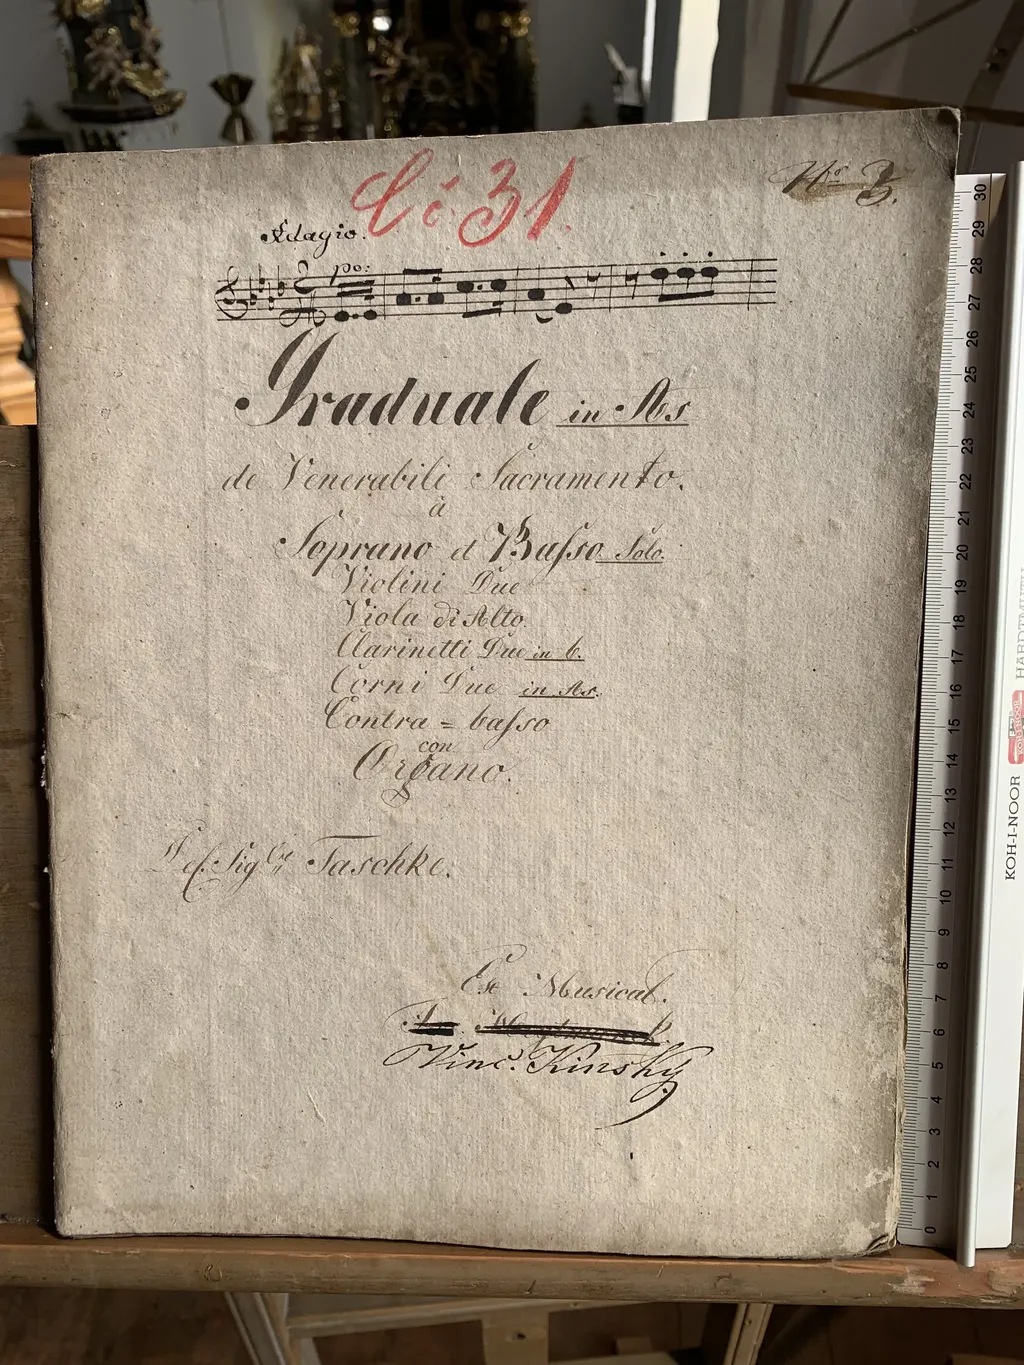 Č: 31.
Nro 3.
Adagio.
po:
Graduale in As
de Venerabili Sacramento.
à
Soprano et Baſso Solo.
Violini Due
Viola di Alto.
Clarinetti Due in b.
Corni Due in As.
Contra = baſso
con
Organo.
Del Sigre Taschke.
Ex Musical.
Vinc. Kinský
30
29
28
27
26
25
24
23
22
21
20
19
18
17
16
15
14
13
12
11
10
9
8
7
6
5
4
3
2
1
0
KOH-I-NOOR HARDTMUTH